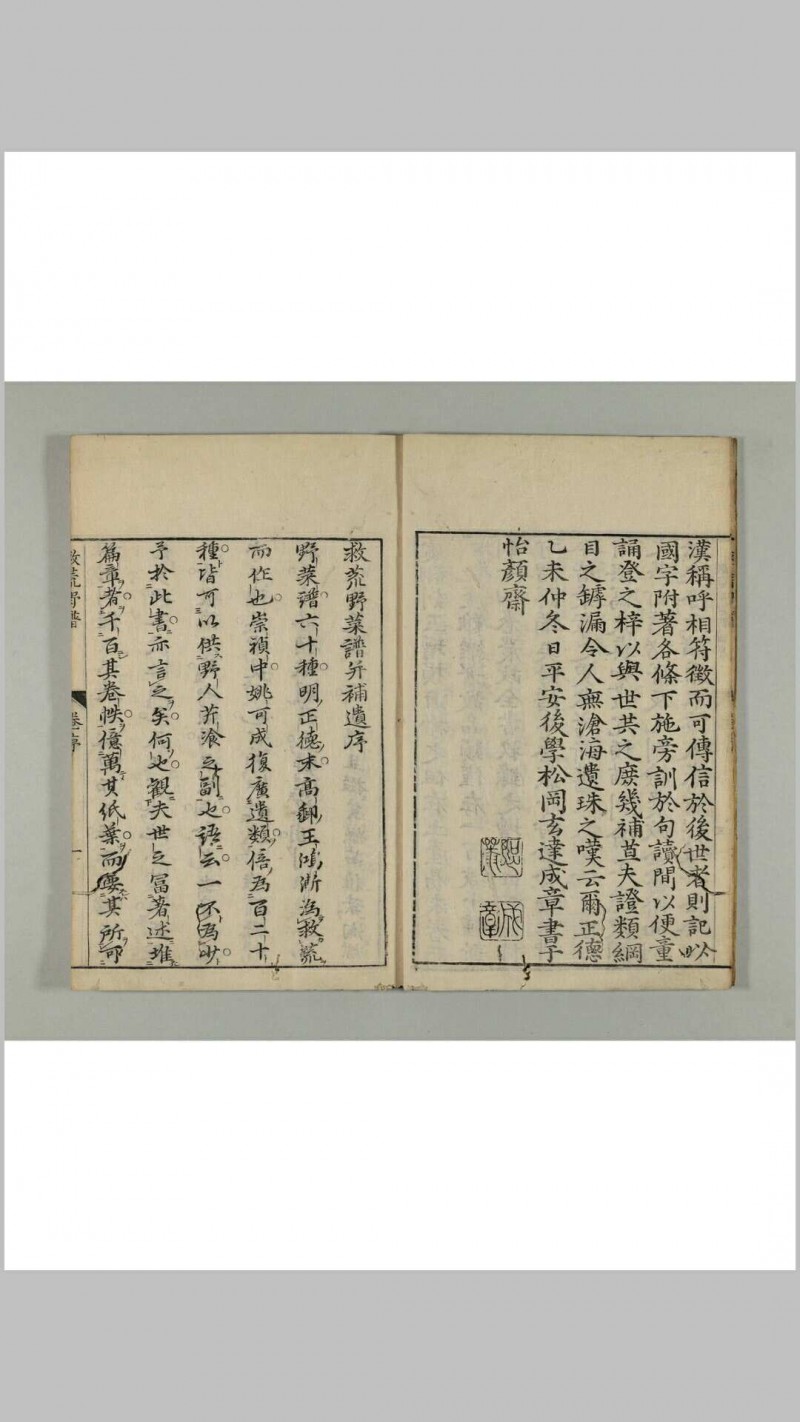 漢稱呼相符徵而可傳信於後世者則記以
國字附著各條下施旁訓於句讀間以便童
誦登之梓以與世共之庶幾補苴夫證類綱
目之罅漏令人無滄海遺珠之嘆云爾正德
乙未仲冬日平安後學松岡玄達成章書于
怡顏齋
成章
救荒野菜譜并補遺序
野菜譜六十種明正德末高郵王鴻漸為救荒
而作也崇禎中姚可成復廣遺類倍為百二十
種皆可以供野人芹飡之副也語云一不為少
予於此書亦言之矣何也觀夫世之富著述堆
篇章者千百其卷帙億萬其紙葉而要其所可
救荒野譜
卷序
一